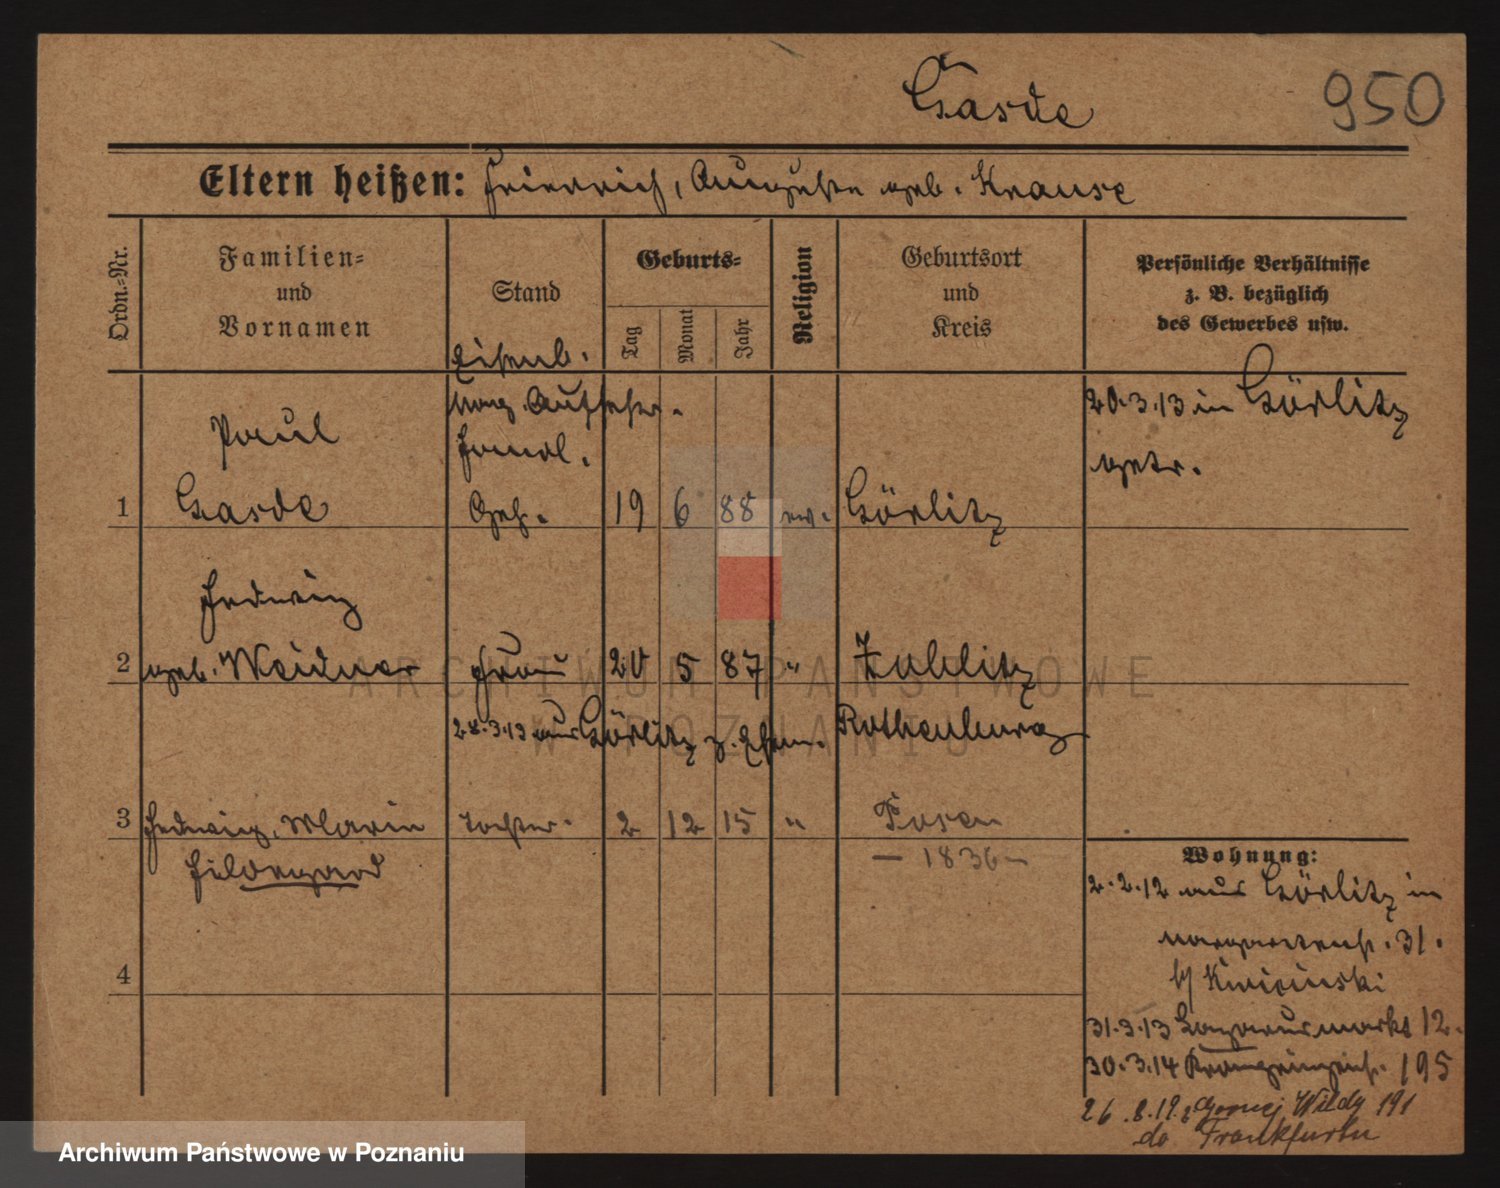 Gasde
950
Eltern heißen: Friedrich, Auguste geb. Krause
Ordn.=Nr.
Familien=
und
Vornamen
Stand
Geburts=
Tag
Monat
Jahr
Religion
Geburtsort
und
Kreis
Persönliche Verhältnisse
z. B. bezüglich
des Gewerbes usw.
Eisenb.
Aufseher.
Paul
1 Gasde
19 6 88 ev. Görlitz
20.3.13 in Görlitz
getr.
Hedwig
2 geb. Weidner Frau 20 5 87 " Zoblitz
aus Görlitz z. Ehem. Rothenburg
3 Hedwig, Marie Tochter. 2 12 15 " Posen
Hildegard
— 1836 —
4
Wohnung:
2.2.12 aus Görlitz in
Margaretenst. 31.
b/
31.3.13 12.
30.3.14 195
26.8.19. z Górnej Wildy 191
do Frankfurtu
ARCHIWUM PAŃSTWOWE
W POZNANIU
Archiwum Państwowe w Poznaniu